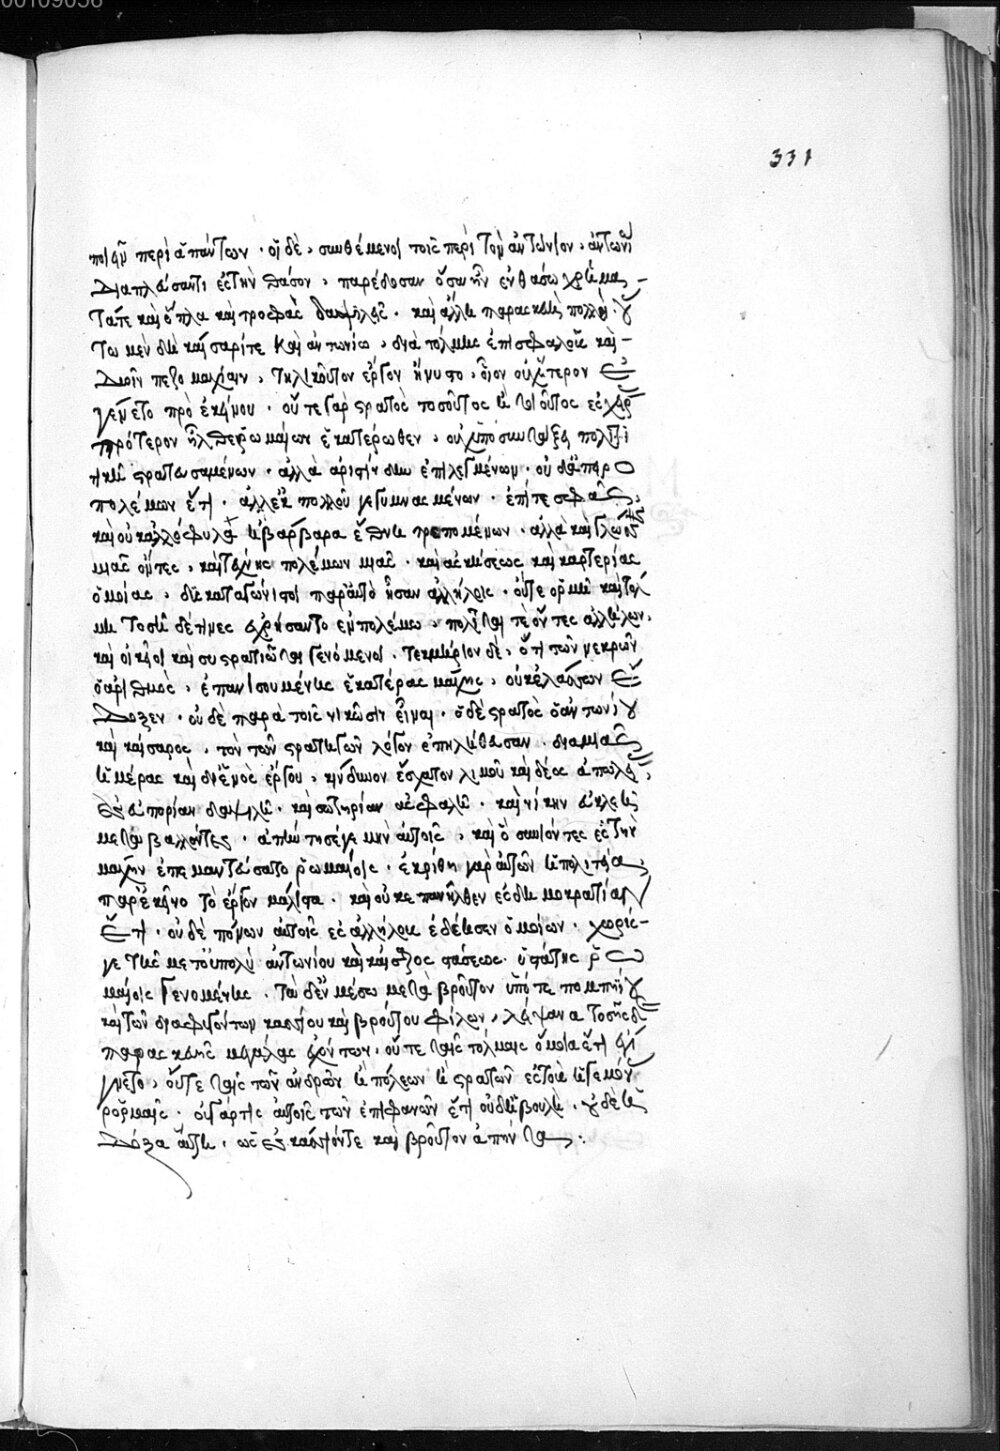 00109056
331
ποιεῖν περὶ ἁπάντων · οἱ δὲ, συνθέμενοι τοῖς περὶ τὸν ἀντώνιον, ἀντωνίῳ
διαπλεύσαντι ἐς τὴν θάσον, παρέδοσαν ὅσα ἦν ἐν θάσῳ χρήμα-
τά τε καὶ ὅπλα καὶ τροφαὶ δαψιλεῖς · καὶ ἄλλη παρασκευὴ πολλή · οὕ
τω μὲν δὴ καίσαρί τε καὶ ἀντωνίῳ, διὰ τόλμης ἐπισφαλοῦς καὶ
δυοῖν πεζομαχίαιν, τηλικοῦτον ἔργον ἤνυστο, οἷον οὐχ ἕτερον ἐ
γένετο πρὸ ἐκείνου · οὔτε γὰρ στρατὸς τοσοῦτος ἢ τοιοῦτος ἐς χεῖρας
πρότερον ἦλθε ῥωμαίων ἑκατέρωθεν, οὐχ ὑπὸ συντάξει πολιτι
κῇ στρατευσαμένων · ἀλλὰ ἀριστίνδην ἐπιλεγμένων · οὐδ' ἀπειρο
πολέμων ἔτι · ἀλλ' ἐκ πολλοῦ γεγυμνασμένων · ἐπί τε σφᾶς,
καὶ οὐκ ἀλλόφυλα ἢ βάρβαρα ἔθνη τρεπομένων · ἀλλὰ καὶ γλώσσης
μιᾶς ὄντες, καὶ τέχνης πολέμων μιᾶς · καὶ ἀσκήσεως καὶ καρτερίας
ὁμοίας, δυσκαταγώνιστοι παρ' αὐτὸ ἦσαν ἀλλήλοις · οὔτε ὁρμῇ καὶ τόλ
μῃ τοσῇδέ τινες ἐχρήσαντο ἐν πολέμῳ, πολῖταί τε ὄντες ἀλλήλων,
καὶ οἰκεῖοι καὶ συστρατιῶται γενόμενοι · τεκμήριον δὲ, ὅτι τῶν νεκρῶν
ὁ ἀριθμὸς, ἐπανισουμένης ἑκατέρας μάχης, οὐκ ἐλασσόνων ἔ
δοξεν · οὐδὲ παρὰ τοῖς νικῶσιν εἶναι · ὁ δὲ στρατὸς ὁ ἀντωνίου
καὶ καίσαρος, τὸν τῶν στρατηγῶν λόγον ἐπηλήθευσαν · διὰ μιᾶς
ἡμέρας καὶ δι' ἑνὸς ἔργου, κίνδυνον ἔσχατον λιμοῦ καὶ δέος ἀπωλείας,
ἐς εὐπορίαν δαψιλῆ · καὶ σωτηρίαν ἀσφαλῆ · καὶ νίκην εὐκλεῆ
μεταβαλλόντες · ἀπήντησέ γε μὴν αὐτοῖς, καὶ ὃ σαπιόντες ἐς τὴν
μάχην ἐπεμαντεύσαντο ῥωμαίοις · ἐκρίθη γὰρ αὐτῶν ἡ πολιτεία
παρ' ἐκεῖνο τὸ ἔργον μάλιστα · καὶ οὐκ ἐπανῆλθεν ἐς δημοκρατίαν
ἔτι · οὐδὲ πόνων αὐτοῖς ἐς ἀλλήλους ἐδέησεν ὁμοίων · χωρίς-
γε τῆς μετ' οὐ πολὺ ἀντωνίου καὶ καίσαρος στάσεως · ὑστάτης ῥω
μαίοις γενομένης · τὰ δ' ἐν μέσῳ μετὰ βροῦτον ὑπό τε πομπηίου
καὶ τῶν διαφυγόντων κασσίου καὶ βρούτου φίλων, λείψανα τοσῆσδε
παρασκευῆς μεγάλας ἐχόντων, οὔτε ταῖς τόλμαις ὅμοια ἔτι ἐγί
γνετο, οὔτε ταῖς τῶν ἀνδρῶν ἢ πόλεων ἢ στρατῶν ἐς τοὺς ἡγεμόνας
ῥοπαῖς · οὐ γάρ τις αὐτοῖς τῶν ἐπιφανῶν ἔτι οὐδ' ἡ βουλὴ · οὐδὲ ἡ
δόξα αὕτη, ὡς ἐς κάσσιόν τε καὶ βροῦτον ἀπήντα :